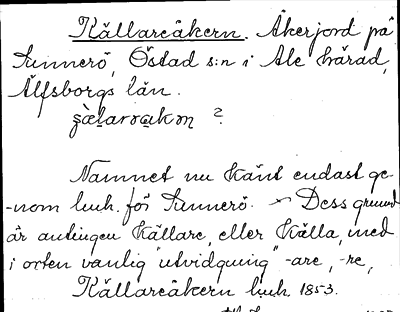 Källareåkern. Åkerjord på
Sunnerö, Östad s:n i Ale härad,
Älfsborgs län.
?
Namnet nu känt endast ge-
-nom lmh. för Sunnerö. Dess grund
är antingen källare, eller källa, med
i orten vanlig "utvidgning" -are, -re,
Källareåkern lmh. 1853.